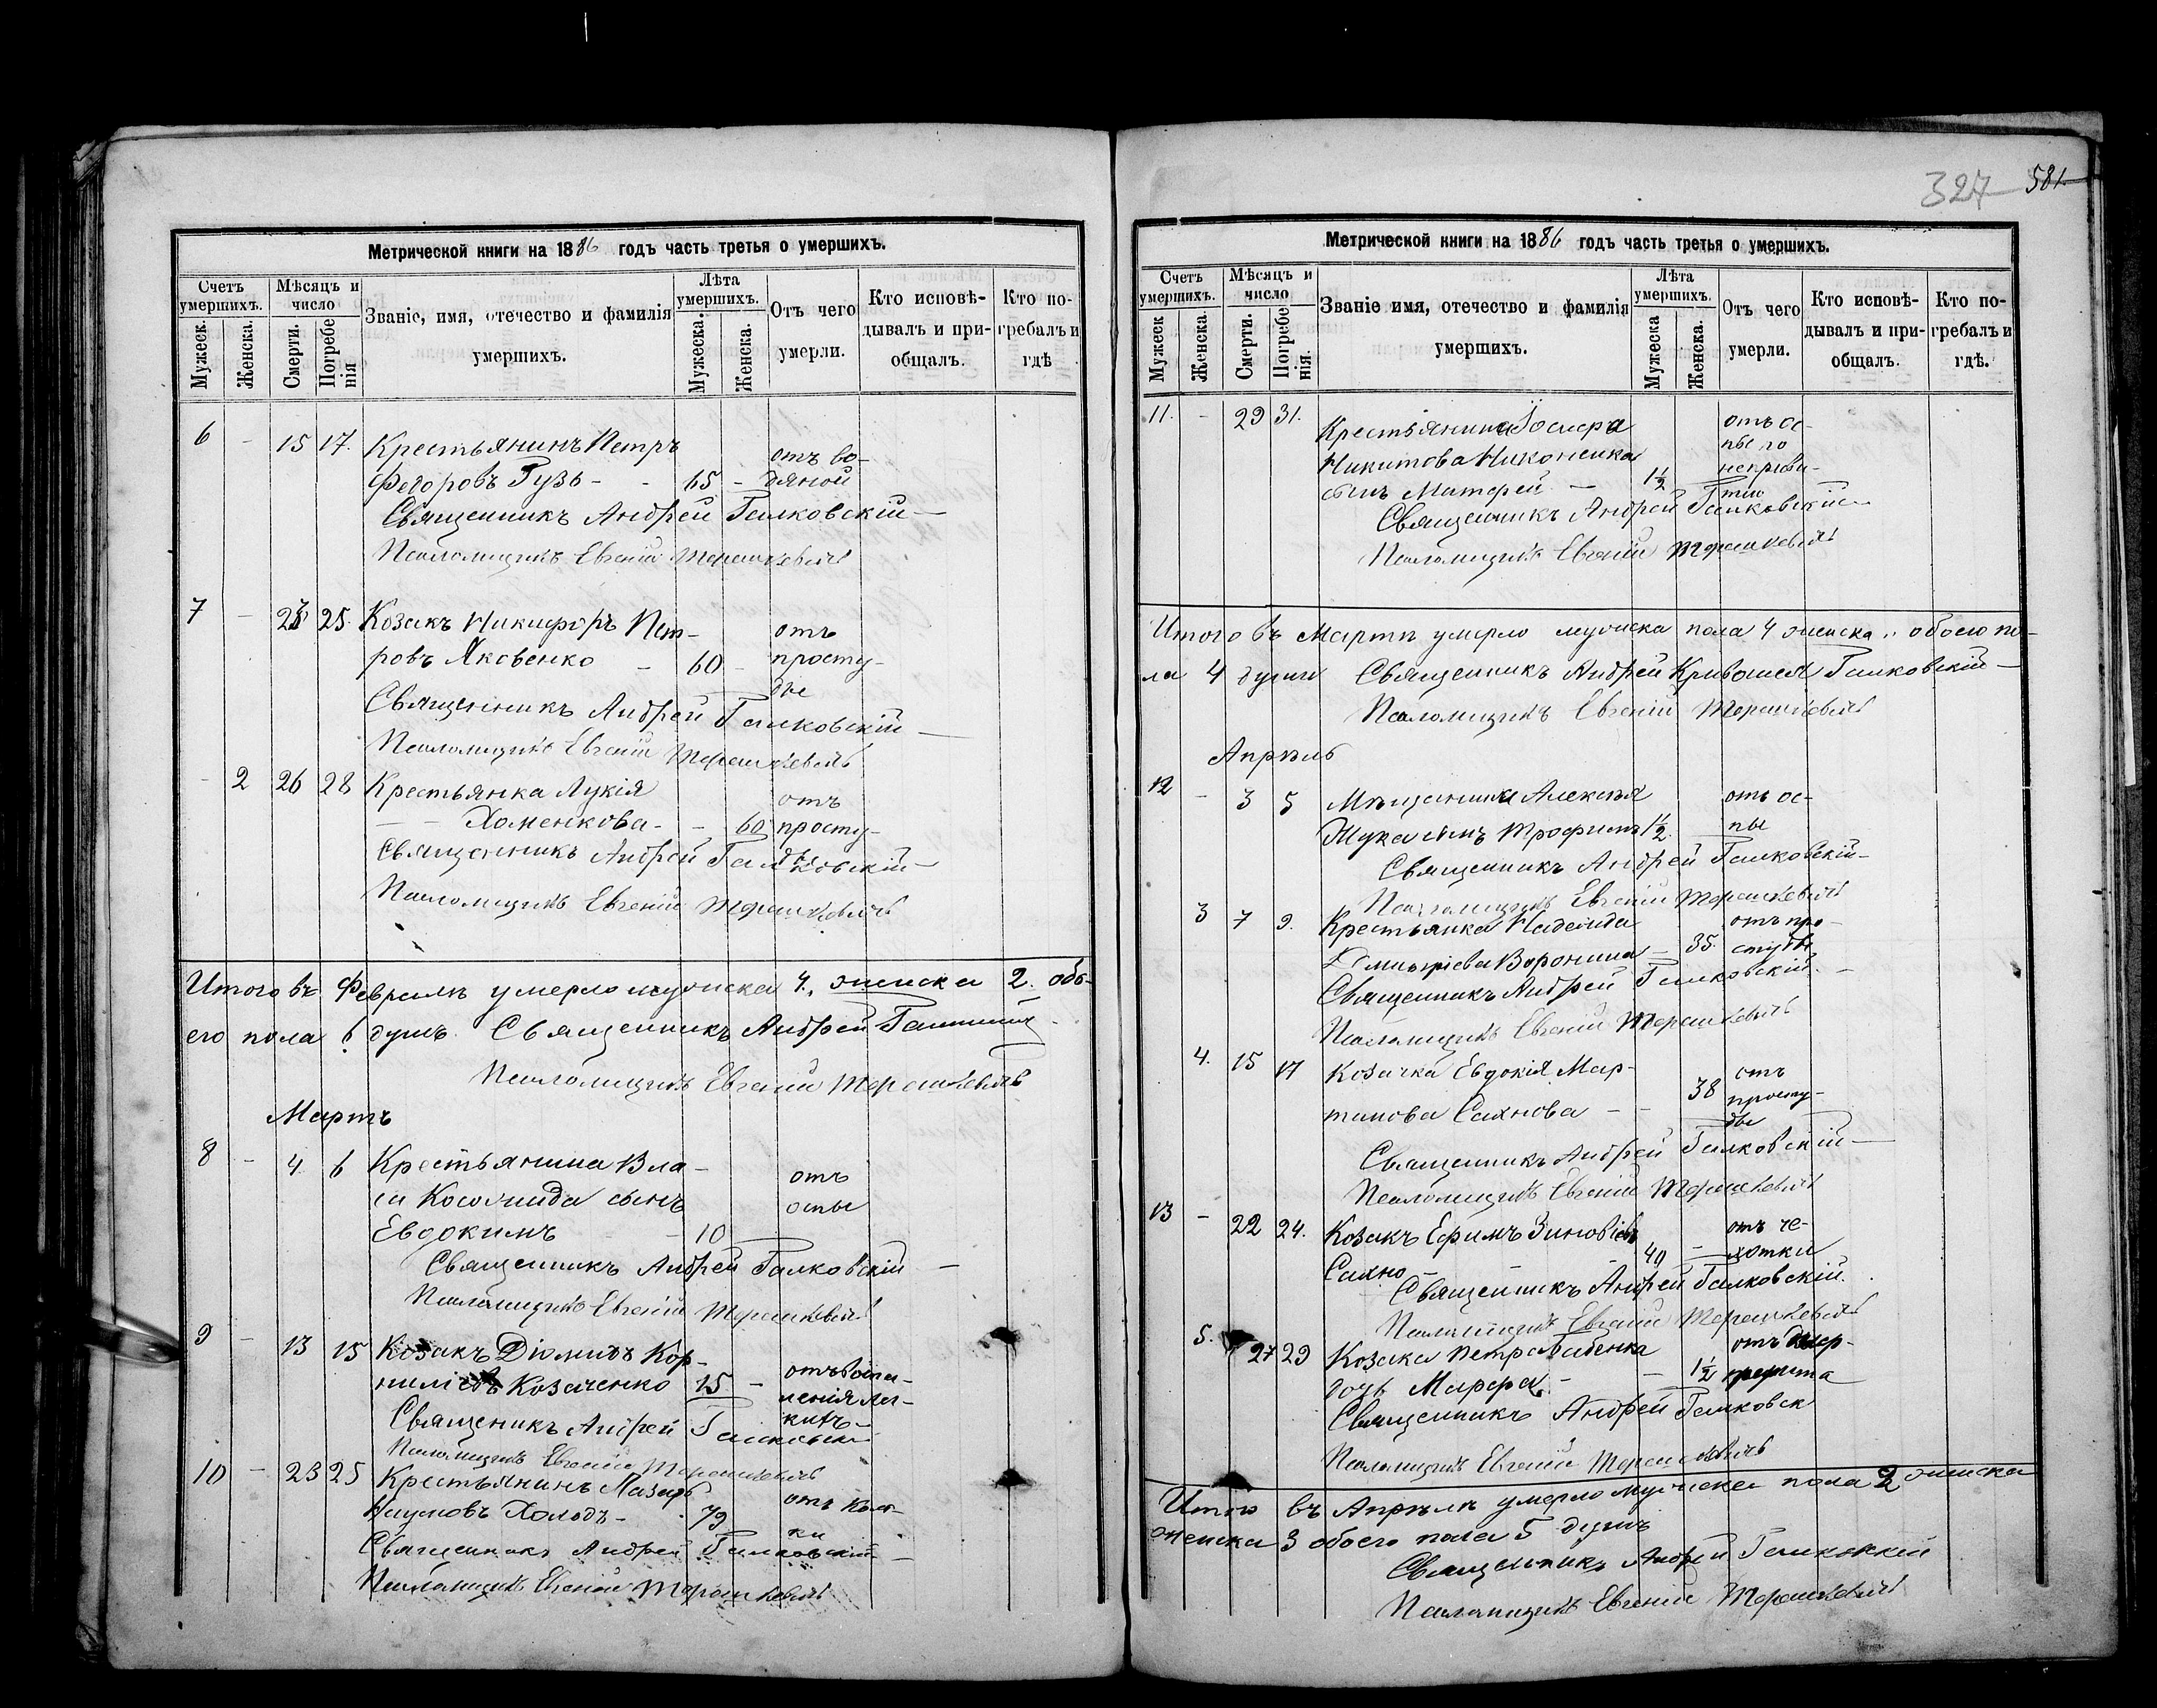 Метрической книги на 1886 годъ часть третья о умершихъ.
Счетъ умершихъ.
Мѣсяцъ и число
Званіе, имя, отечество и фамилія умершихъ.
Лѣта умершихъ.
Отъ чего умерли.
Кто исповѣдывалъ и пріобщалъ.
Кто погребалъ и гдѣ
Мужеск.
Женска.
Смерти.
Погребенія
Мужеска.
Женска.
6 - 15 17. Крестьянинъ Петръ отъ во-
Федоровъ Гузь - - 65 - дяной
Священникъ Андрей Галковскій
Псаломщикъ Евгеній Терешкевичъ
7 - 23 25. Козакъ Никифоръ Пет- отъ
ровъ Яковенко - 60 - просту-
ды
Священникъ Андрей Галковскій
Псаломщикъ Евгеній Терешкевичъ
- 2 26 28 Крестьянка Лукія отъ
Хоменкова - - 60 просту-
ды
Священникъ Андрей Галковскій
Псаломщикъ Евгеній Терешкевичъ
Итого въ Февралѣ умерло мужска 4, женска 2. обо-
его пола 6 душъ. Священникъ Андрей
Псаломщикъ Евгеній Терешкевичъ
Мартъ
8 - 4 6 Крестьянина Вла-
са сынъ отъ
оспы
Евдокимъ - 10
Священникъ Андрей Галковскій
Псаломщикъ Евгеній Терешкевичъ
9 - 13 15 Козакъ Діомидъ Кор-
ниліевъ Козаченко 15 - отъ воспа-
ленія лег-
кихъ
Священикъ Андрей Галковскій
Псаломщикъ Евгеній Терешкевичъ
10 - 23 25 Крестьянинъ Лазарь
Наумовъ Холодъ - 79 отъ
Священникъ Андрей Галковскій
Псаломщикъ Евгеній Терешкевичъ
327 581.
Метрической книги на 1886 годъ часть третья о умершихъ.
Счетъ умершихъ.
Мѣсяцъ и число
Званіе имя, отечество и фамилія умершихъ.
Лѣта умершихъ.
Отъ чего умерли.
Кто исповѣдывалъ и пріобщалъ.
Кто погребалъ и гдѣ.
Мужеск
Женска.
Смерти.
Погребенія.
Мужеска
Женска.
11. - 29 31. Крестьянина Іосифа отъ ос-
Никитова Никоненка пы по
сынъ Матфей - 1½ непривы-
тію
Священникъ Андрей Галковскій
Псаломщикъ Евгеній Терешкевичъ
Итого въ Мартѣ умерло мужска пола 4 женска „ обоего по-
ла 4 души Священникъ Андрей Галковскій
Псаломщикъ Евгеній Терешкевичъ
Апрѣль
12 - 3 5 Мѣщанина Алексѣя отъ ос-
Жука сынъ Трофимъ 1½ пы
Священникъ Андрей Галковскій
Псаломщикъ Евгеній Терешкевичъ
3 7 9. Крестьянка Надежда отъ про-
Дмитріева Воронина - 35. студы
Священникъ Андрей Галковскій
Псаломщикъ Евгеній Терешкевичъ
4. 15 17 Козачка Евдокія Мар- отъ
тинова Сахнова - - 38 просту-
ды
Священникъ Андрей Галковскій
Псаломщикъ Евгеній Терешкевичъ
13 - 22 24. Козакъ Ефимъ Зиновіевъ отъ ча-
Сахно - 40 - хотки
Священникъ Андрей Галковскій.
Псаломщикъ Евгеній Терешкевичъ
5. 27 29 Козака Петра Бабенка отъ
дочь Марфа. - - 1½
Священникъ Андрей Галковск
Псаломщикъ Евгеній Терешкевичъ
Итого въ Апрѣлѣ умерло мужска пола 2 женска
женска 3 обоего пола 5 душъ
Священникъ Андрей Галковскій
Псаломщикъ Евгеній Терешкевичъ